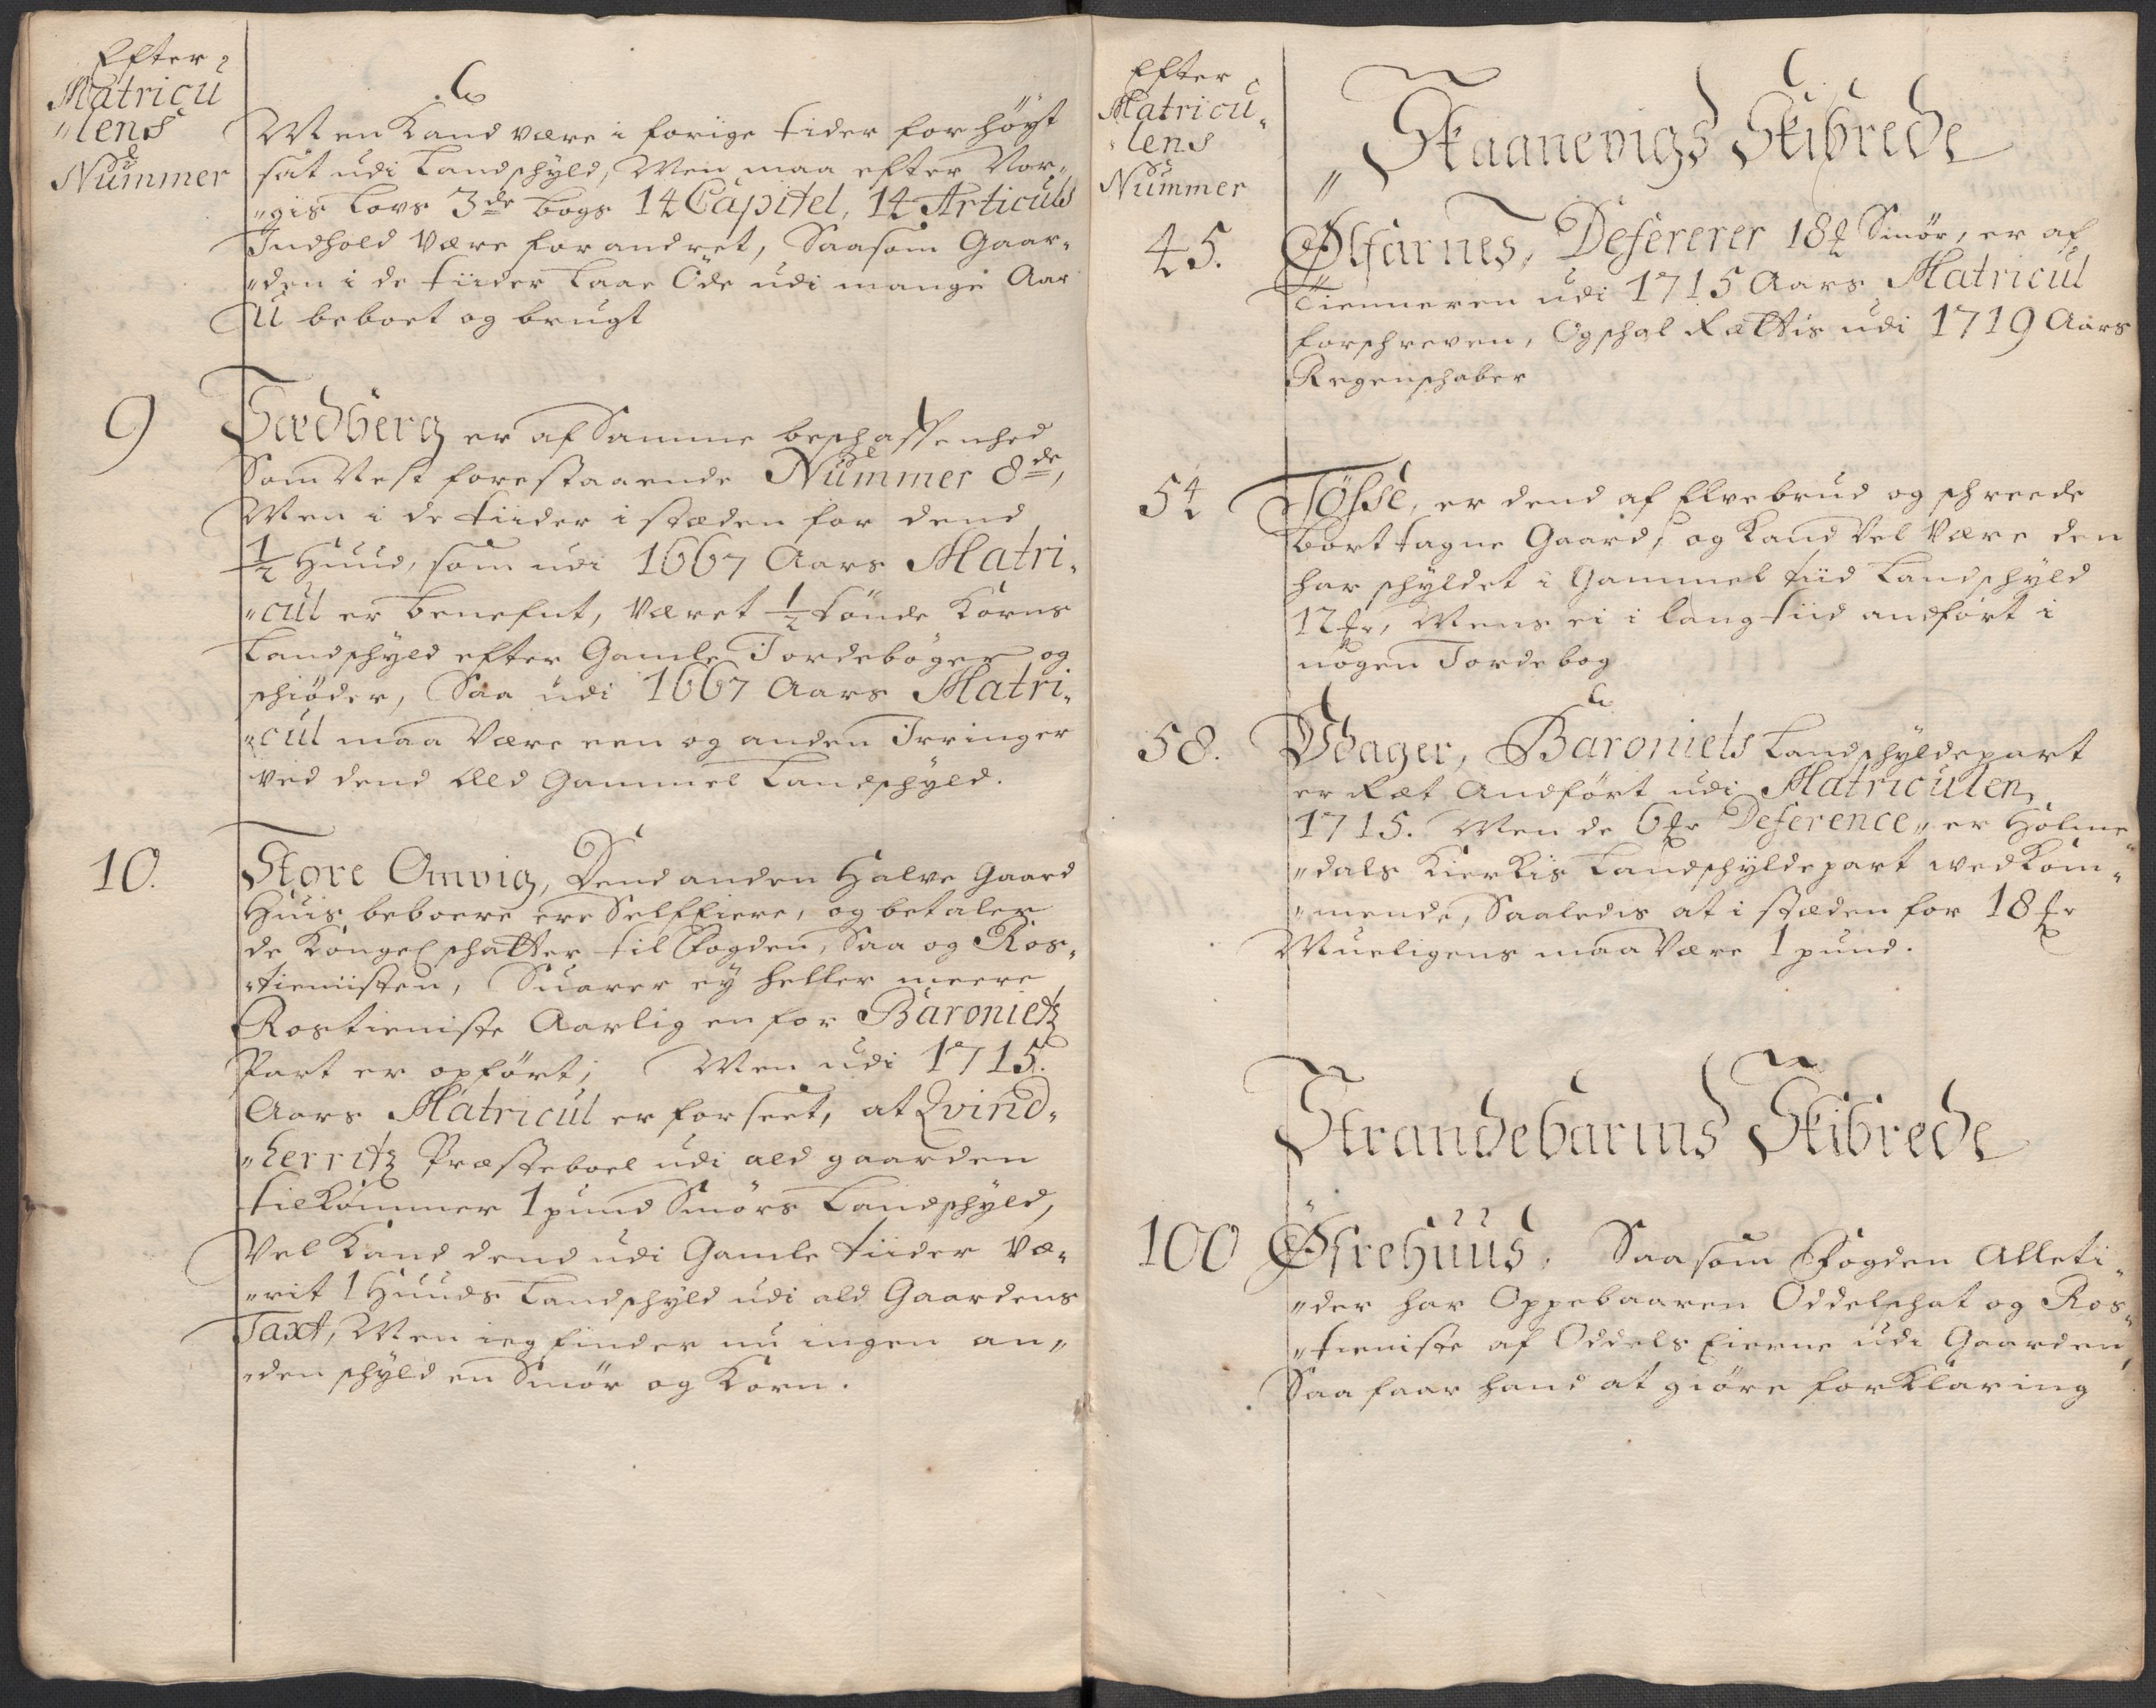 Efter
Matricu
"lens
Nummer
Men kand være i forige tider for høyt
sat udi Landschyld, Men maa efter Nor-
"gis Lovs 3de bogs 14 Capitel, 14 Articuls
Indhold være forandret, Saasom Gaar-
"den i de tiider laae Öde udi mange Aar
u beboet og brugt
9
Sædberg er af Samme beschaffenhed
Som Nest forestaaende Nummer 8de,
Men i de tiider i stæden for dend
1/2 Huud, som udi 1667 Aars Matri-
"cul er benefnt, Været 1/2 tönde Korns
Landschyld efter Gamle Jordebøger og
schiøder, Saa udi 1667 Aars Matri-
"cul maa Være een og anden Irringer
ved dend Ald Gammel Landschyld.
10.
Store Omvig, Dend anden Halve Gaard
Huis beboere ere Selfeiere, og betaler
de Kongel schatter til Fogden, Saa og Ros-
"tieniisten, Suarer ey heller meere
Rostieniste Aarlig en for Baronietz
Part er opført; Men udi 1715.
Aars Matricul er forseet, at Qvind-
"herritz Præsteboel udi ald gaarden
tilkommer 1 pund Smörs Landschyld,
Vel kand dend udi Gamle tiider Væ-
"rit 1 Huuds Landschyld udi ald Gaardens
Taxt, Men ieg finder nu ingen an"
"den schyld en Smör og Korn.
Efter
Matricu-
"lens
Nummer
Skaanevigs Skibrede
45.
Ølfarnes, Defererer 18 Smör, er af
Tienneren udi 1715 Aars Matricul
forschreven, Og schal Rættis udi 1719 Aars
Regenschaber
54
Tösse, er dend af Elvebrud og schreede
bort tagne Gaard, og kand Vel Være den
har schyldet i Gammel tiid Landschyld
12, Mens ei i lang tiid andfört i
nogen Jordebog
58.
Vdager, Baroniets Landschyldepart
er Ræt Andfört udi Matriculen
1715. Men de 6 Deference, er Holme
"dals Kierkis Landschyldepart vedkom-
"mende, Saaledis at i stæden for 18
Mueligens maa Være 1 pund.
Strandebarms Skibrede
100
Øfrehuus, Saasom Fogden Alleti-
"der har Oppebaaren Oddelschat og Ros-
"tieniste af Oddels Eierne udi Gaarden,
Saa faar hand at giøre forklaring